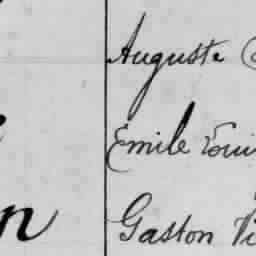 Auguste
Emile Loui
n Gaston Vi